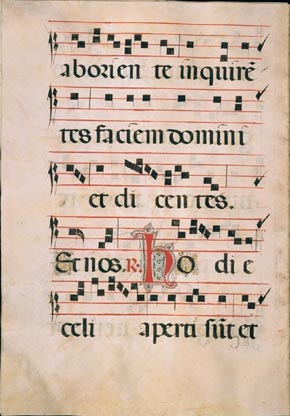 aborien te inquirē
tes faciem domini
et di cen tes.
Et nos. R. Ho di e
celi aperti sūt et